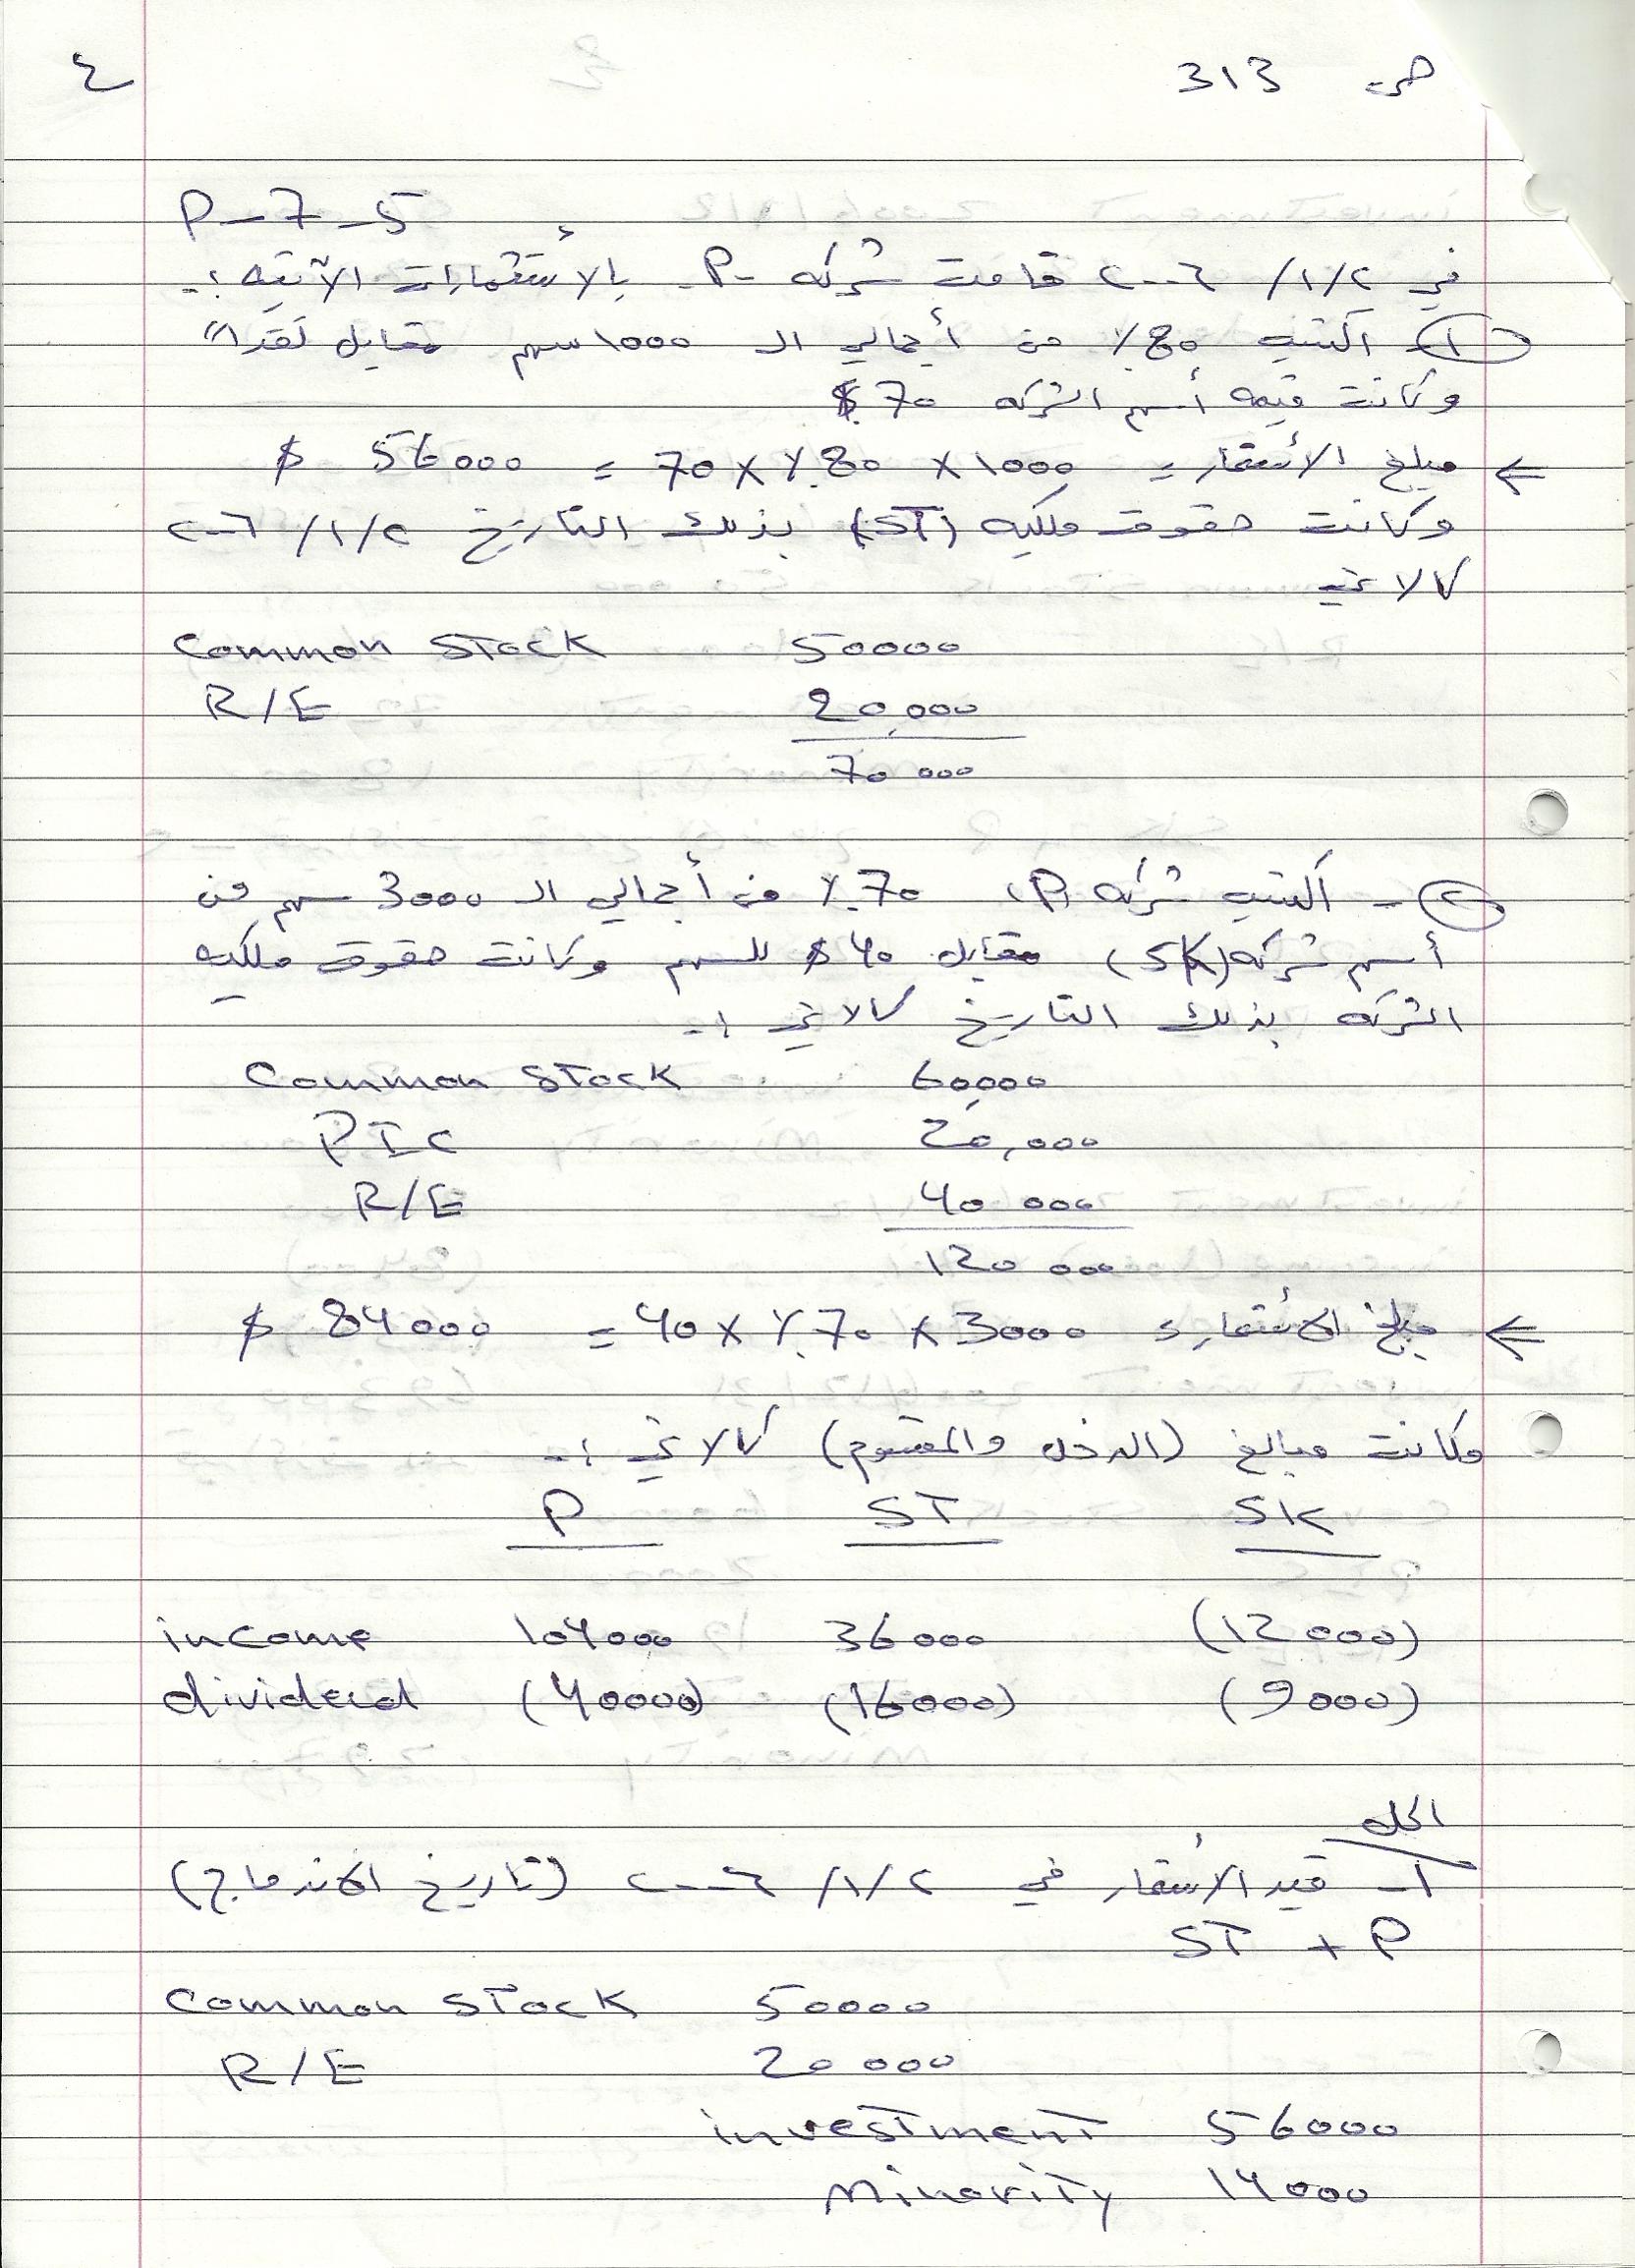 ص 313
٤
P-7-5
في ٢/١/ ٢٠٠٦ قامت شركه -P- بالأستثمارات الآتيه :-
١- اكتتب 80٪ من أجمالي الـ 1000 سهم مقابل نقداً
وكانت قيمه أسهم الشركه 70 $
← مبلغ الأستثمار = 1000 × 80٪ × 70 = 56000 $
وكانت حقوق ملكيه (ST) بذلك التاريخ ٢/١/ ٢٠٠٦
كالاتي
Common Stock 50000
R/E 20,000
70 000
٢- أكتتب شركه (P) 70٪ من أجمالي الـ 3000 سهم من
أسهم شركه (SK) مقابل 40 $ للسهم وكانت حقوق ملكيه
الشركه بذلك التاريخ كالاتي :-
Common Stock 60,000
PIC 20,000
R/E 40 000
120 000
← مبلغ الأستثمار = 3000 × 70٪ × 40 = 84000 $
وكانت مبالغ (الدخل والمقسوم) كالاتي :-
P ST SK
income 104000 36000 (12000)
dividend (40000) (16000) (9000)
الحل
١- قيد الأستثمار في ٢/١/ ٢٠٠٦ (تاريخ الاندماج)
ST + P
Common Stock 50000
R/E 20 000
investment 56000
Minority 14000